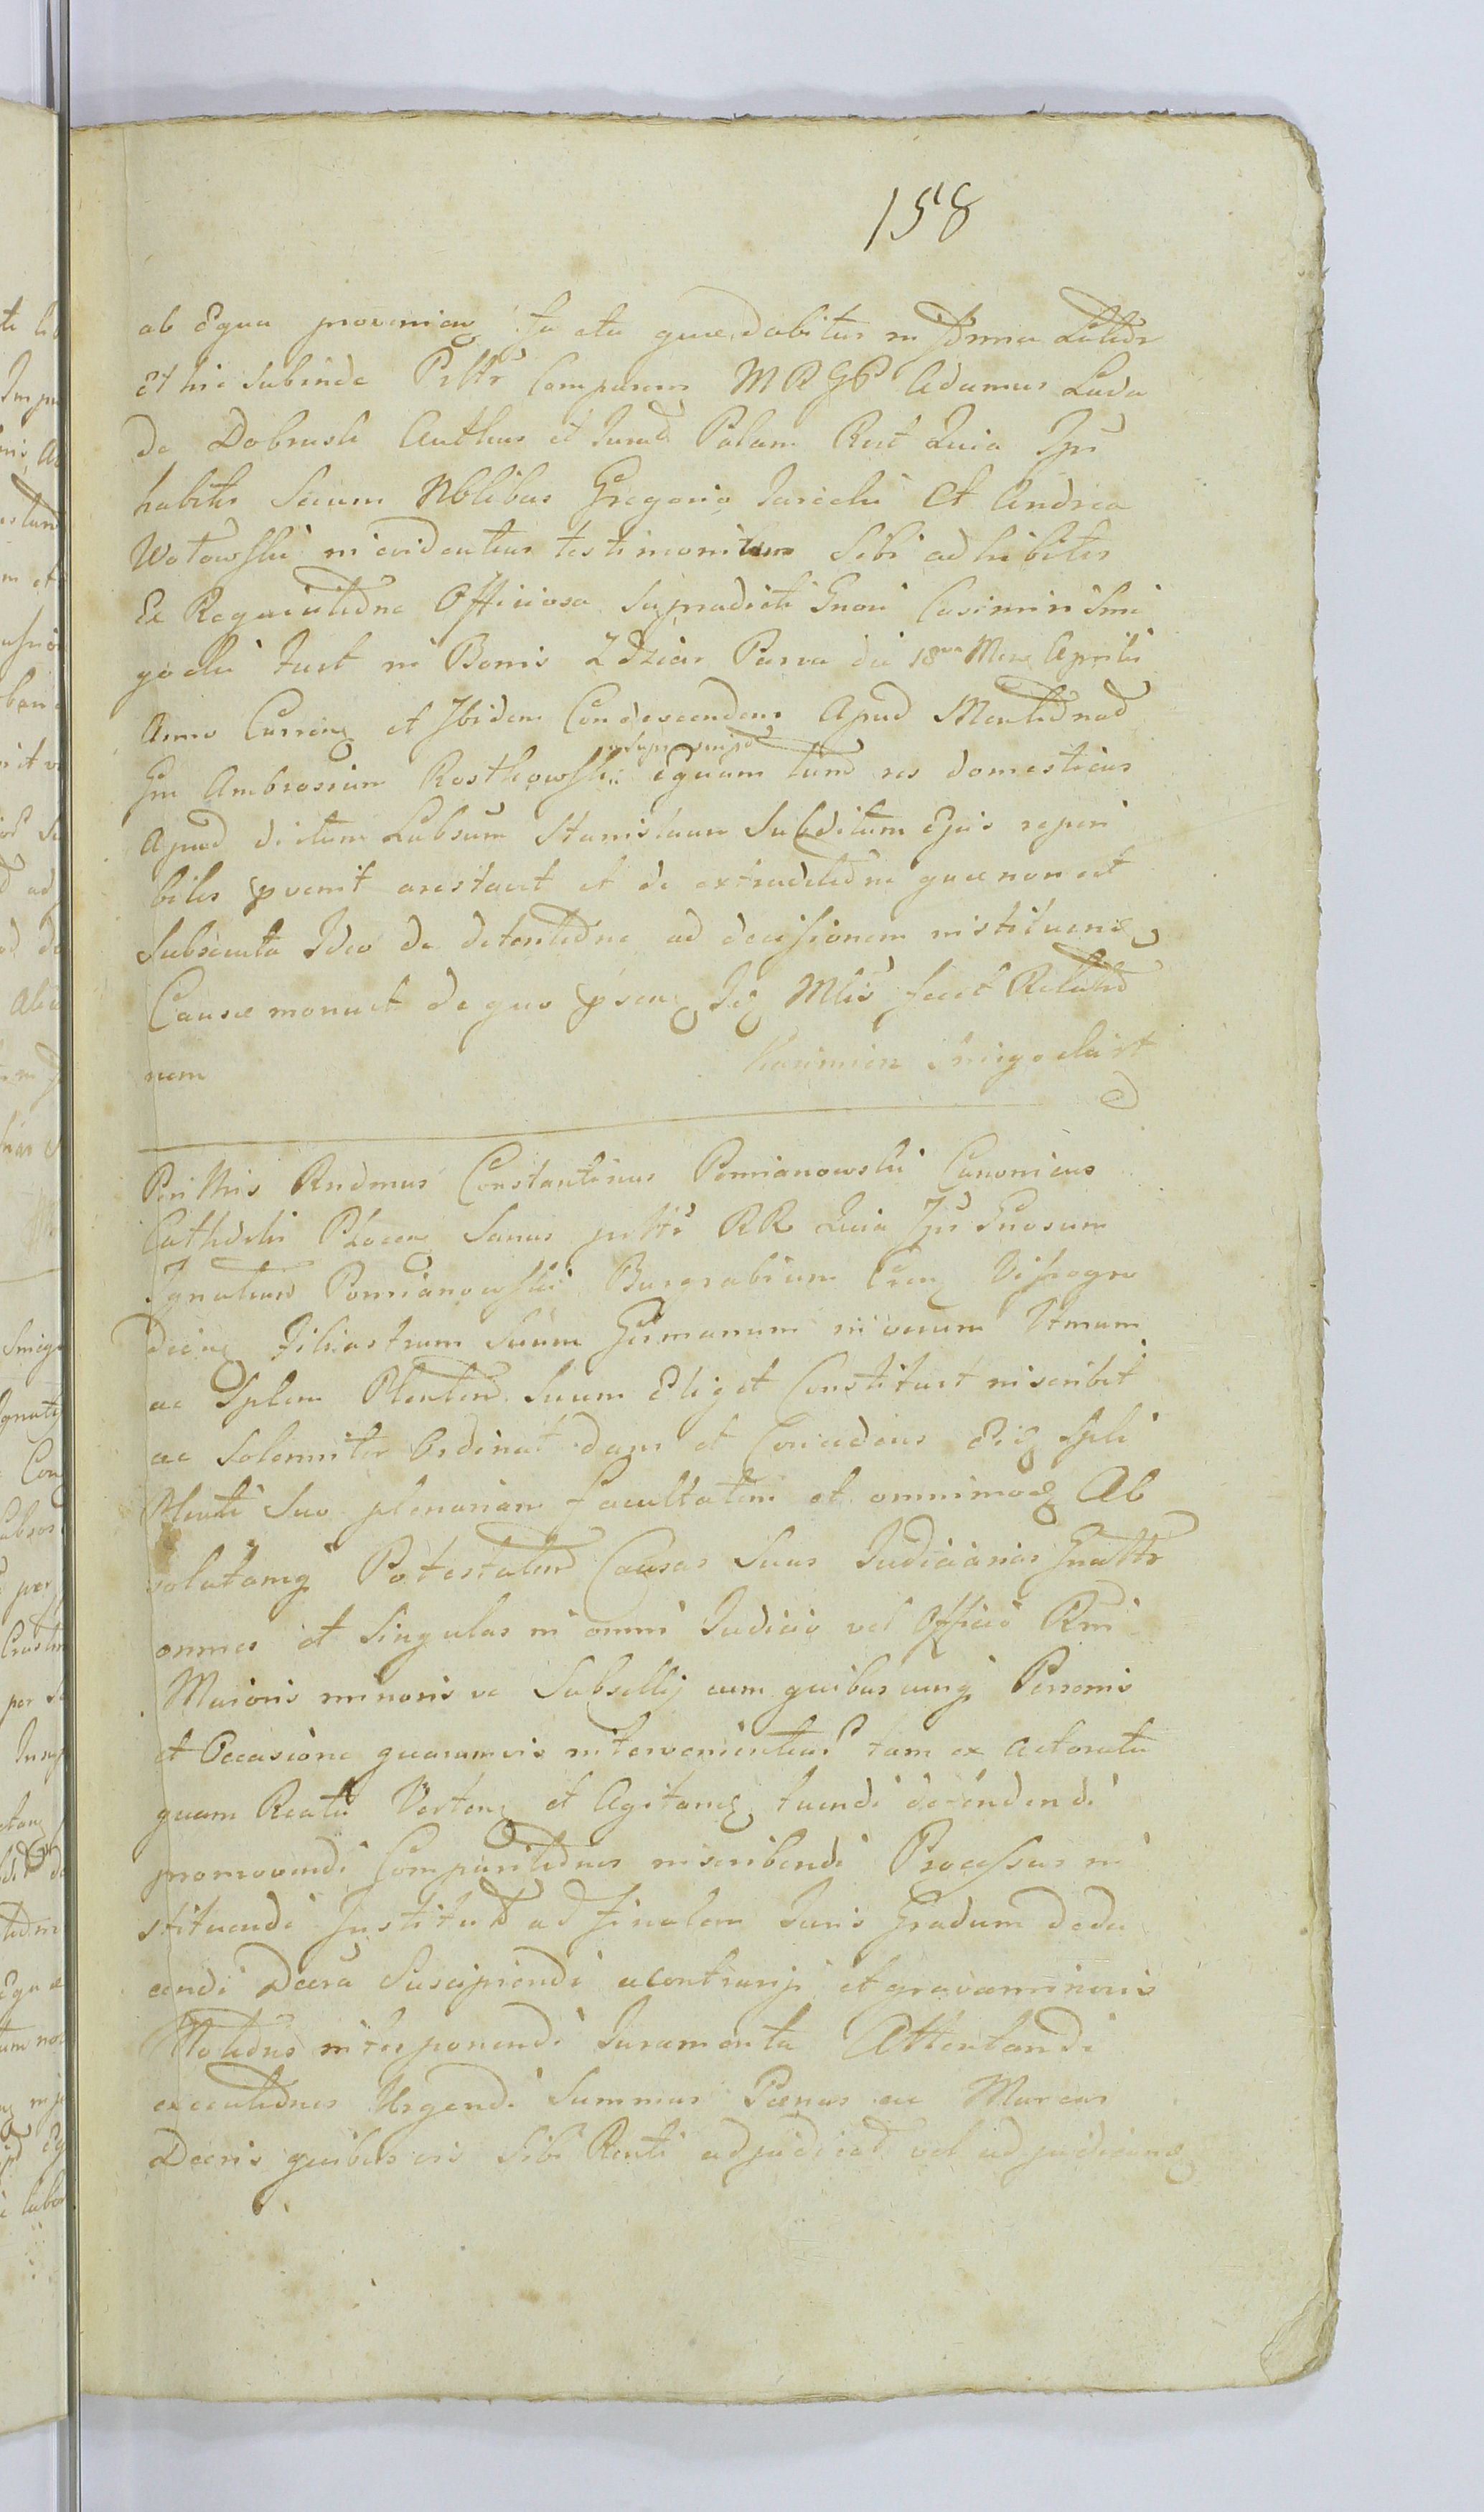 158
ab Equa provenien facta quae dabitur in Termino
Et hic subinde Psltr Comparens MRGP Adamus Luda
de Dobrusk Authus et Jurad Palam Rect Quia Ips
habitis Secum Nblibus Gregorio Et Andrea
Wotowski in evidentius testimonium Sibi adhibitis
Ex Requisitione Officiosa Supradicti Gnosi Casimiri Smi
gocki fuit in Bonis Zdziar Parva die 18va Mens Aprilis
Anno Curren et Ibidem Condescendens Apud
Gm Ambrosium Rostkowski Equam tum res domesticas
Apud dictum Labsum Stanislaum Subditum Ejus reperi
biles pvenit arestavit et de extraditione quae non est
Subsecuta Ideo de detentione ad decissionem instituen
Causae monuit de quo psens Mlis fecit Relatio
nem
Kazimierz Smigocki

Perillris Rndmus Constantinus Pomianowski Canonicus
Cathdrlis Plocen Sanus psltr RR Quia Ips Gnosum
Ignatium Pomianowski Burgrabium Cren Vissogro
dien Filiastrum Suum Germanum in verum Ltmum
ac Splem Plentem Suum Eligit Constituit inscribit
ac Solenniter Ordinat dans et Concedens Eid Spli
Plenti Suo plenariam facultatem et omnimod Ab
solutamq Potestatem Causas Suas Judiciarias Gnaltr
omnes et Singulas in omni Judicio vel Officio Rni
Maioris minoris ve Subsellij cum quibuscunq Personis
et Occasione quarumvis intervenientium tam ex Actoratu
quam Reatu Verten et Agitand tuendi defendendi
promovendi Comparitiones inscribendi Processus in
stituendi Institut ad finalem Juris Gradum dedu
cendi Decra Suscipiendi a contrarijs et gravaminosis
Motiones interponendi Juramenta Attentandi
executiones Urgendi Summas Poenas ac Marcas
Decris quibusvis Sibi Rcnti adjudicat vel adjudican